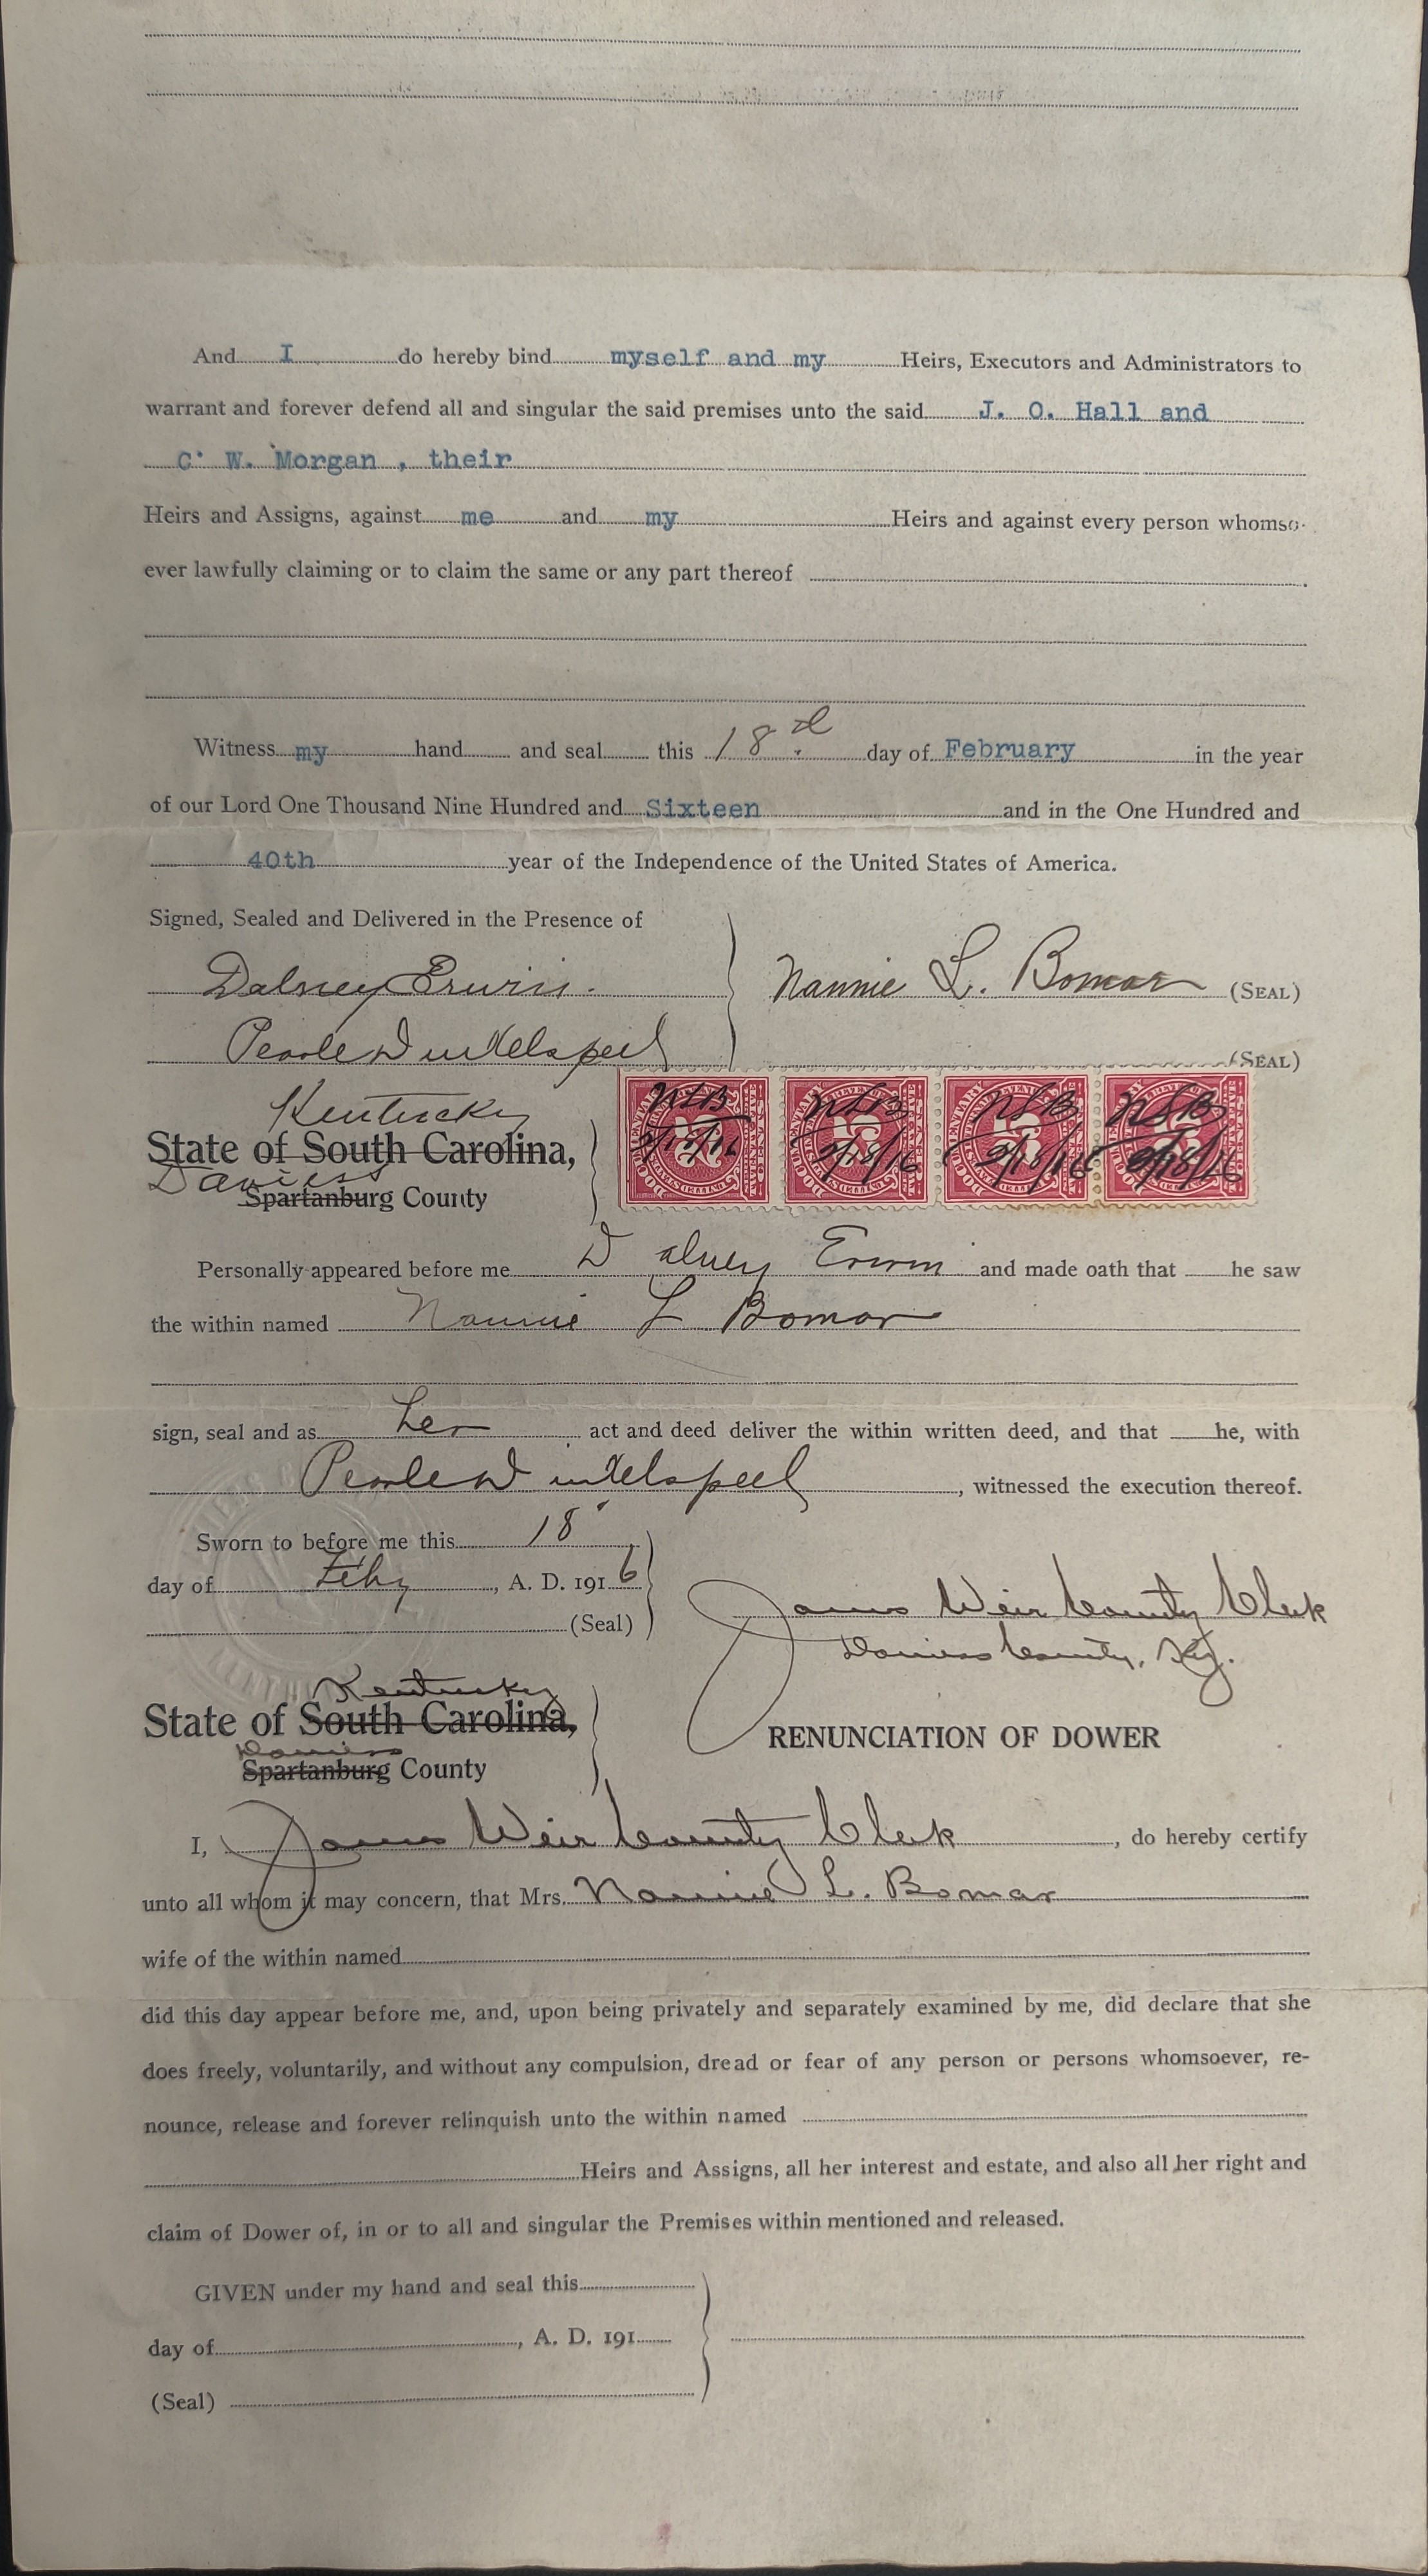 And I do hereby bind myself and my Heirs, Executors and Administrators to
warrant and forever defend all and singular the said premises unto the said J. O. Hall and
C. W. Morgan , their
Heirs and Assigns, against me and my Heirs and against every person whomso-
ever lawfully claiming or to claim the same or any part thereof
Witness my hand and seal this 18d day of February in the year
of our Lord One Thousand Nine Hundred and Sixteen and in the One Hundred and
40th year of the Independence of the United States of America.
Signed, Sealed and Delivered in the Presence of
Dalney Erwin. Nannie L. Bomar (SEAL)
(SEAL)
Kentucky
State of South Carolina,
Daviess
Spartanburg County
NLB NLB NLB NLB
2/18/16 2/18/16 2/18/16 2/18/16
Personally appeared before me Dalney Erwin and made oath that he saw
the within named Nannie L Bomar
sign, seal and as her act and deed deliver the within written deed, and that he, with
, witnessed the execution thereof.
Sworn to before me this 18
day of Feby , A. D. 1916
(Seal)
James Weir County Clerk
Daviess County, Ky.
Kentucky
State of South Carolina,
RENUNCIATION OF DOWER
Daviess
Spartanburg County
I, James Weir County Clerk , do hereby certify
unto all whom it may concern, that Mrs. Nannie L. Bomar
wife of the within named
did this day appear before me, and, upon being privately and separately examined by me, did declare that she
does freely, voluntarily, and without any compulsion, dread or fear of any person or persons whomsoever, re-
nounce, release and forever relinquish unto the within named
Heirs and Assigns, all her interest and estate, and also all her right and
claim of Dower of, in or to all and singular the Premises within mentioned and released.
GIVEN under my hand and seal this
day of , A. D. 191
(Seal)